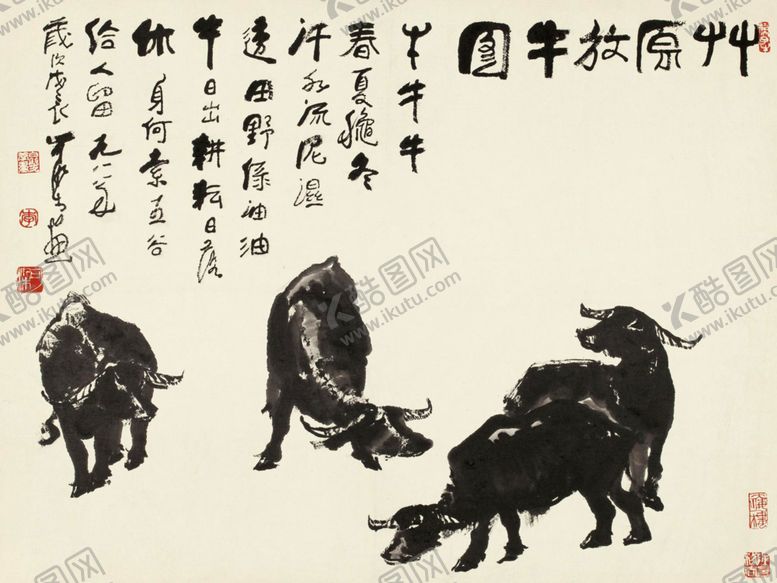 艸原放牛图
牛牛牛
春夏穐冬
汗水流泥湿
透田野绿油油
牛日出耕耘日落
休身何索五谷
给人留
岁次戊辰
酷图网
www.ikutu.com